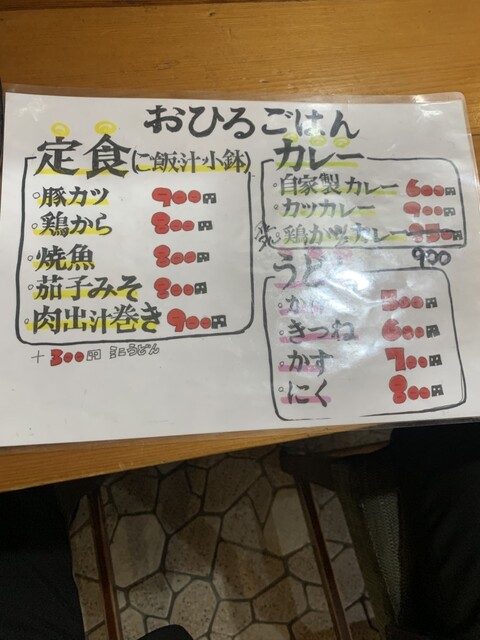 おひるごはん
定食(ご飯・汁・小鉢)
・豚カツ 900円
・鶏から 800円
・焼魚 800円
・茄子みそ 800円
・肉出汁巻き 900円
+300円 ミニうどん
カレー
・自家製カレー 600円
・カツカレー 900円
・鶏かつカレー 850円
900
うどん
・かけ 500円
・きつね 600円
・かす 700円
・にく 800円